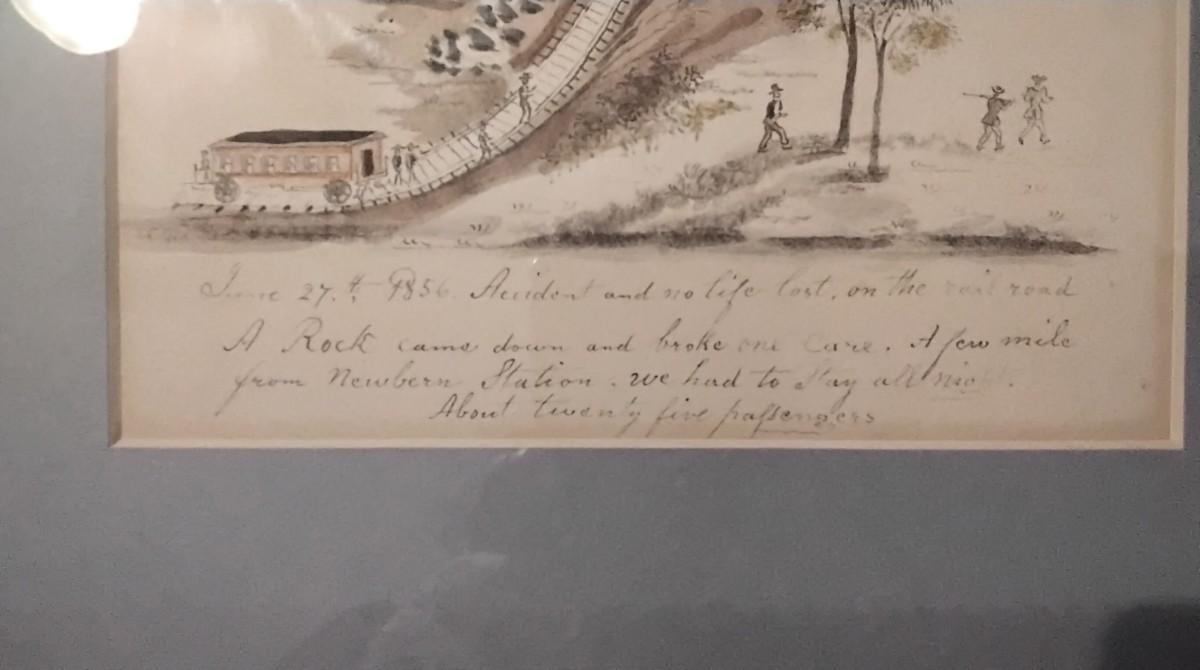 June 27.th 1856. Accident and no life lost, on the rail road
A Rock came down and broke one Care. A few mile
from Newbern Station. we had to Stay all
About twenty five passengers